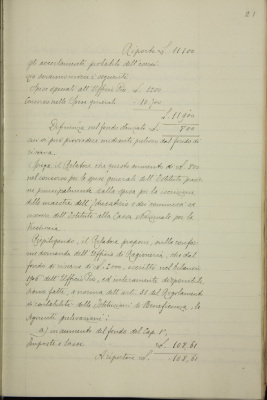 21
Riporto £. 11,100
gli accertamenti probabili dell'eserci-
zio ammonteranno a seguenti:
Spese generali all'Ufficio Pio £. 1200
Economo nelle Spese generali - 10,700
£. 11,900
Differenza nel fondo stanziato £. 800
cui si può provvedere mediante prelievo dal fondo di
riserva.
Spiega il Relatore che questo aumento di £. 800
nel concorso per le spese generali dell'Istituto provie-
ne principalmente dalla spesa per la iscrizione
delle maestre dell'Educatorio e dei commessi ed
uscieri dell'Istituto alla Cassa Nazionale per la
Vecchiaia.
Riepilogando, il Relatore propone, sulla confor-
me domanda dell'Ufficio di Ragioneria, che dal
fondo di riserva di £. 2000, iscritto nel bilancio
1906 dell'Ufficio Pio, ed interamente disponibile,
siano fatte, a norma dell'art. 31 del Regolamento
di contabilità delle Istituzioni di Beneficenza, le
seguenti prelevazioni:
a) in aumento del fondo del Cap. 1°,
Imposte e tasse £. 108,61
A riportare £. 108,61